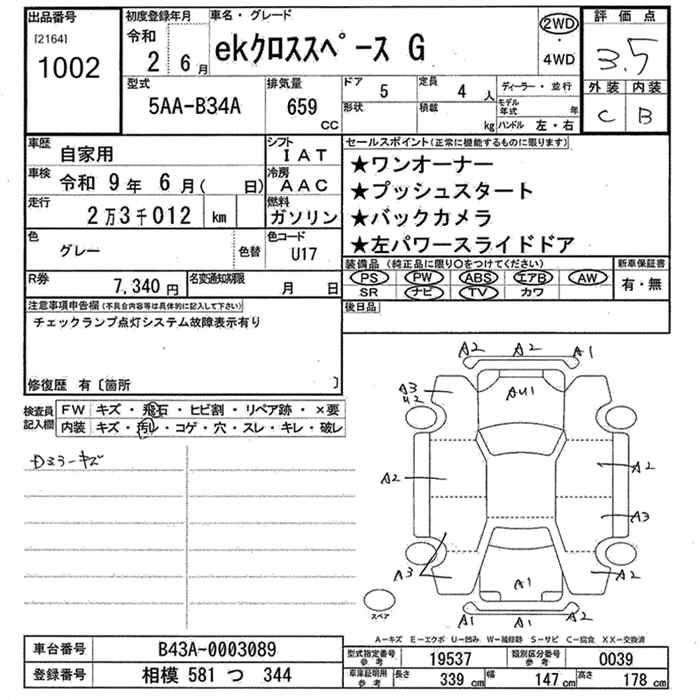 出品番号
[2164]
1002
初度登録年月
令和
2 6月
車名・グレード
ekクロススペース G
2WD
・
4WD
評価点
3.5
外装 内装
C B
型式
5AA-B34A
排気量
659
CC
ドア 5
形状
定員 4 人
積載 kg
ディーラー・並行
モデル年式 年
ハンドル 左・右
車歴 自家用
シフト IAT
車検 令和 9年 6月( 日)
冷房 AAC
走行 2万3千012 km
燃料 ガソリン
色 グレー 色替
色コード U17
R券 7,340円
名変通知期限 月 日
セールスポイント(正常に機能するものに限ります)
★ワンオーナー
★プッシュスタート
★バックカメラ
★左パワースライドドア
装備品(純正品に限り〇をつけてください)
PS PW ABS エアB AW
SR ナビ TV カワ
新車保証書
有・無
後日品
注意事項申告欄(不具合内容等は具体的に記入して下さい)
チェックランプ点灯システム故障表示有り
修復歴 有〔箇所 〕
検査員記入欄
FW キズ・飛石・ヒビ割・リペア跡・×要
内装 キズ・汚レ・コゲ・穴・スレ・キレ・破レ
Dミラーキズ
A2 A2 A1
A3
U2
AU1
A2
A2
A3
A3
A1
A2
A1 A1 A1
スペア
A－キズ E－エクボ U－凹み W－補修跡 S－サビ C－腐食 XX－交換済
車台番号 B43A-0003089
登録番号 相模 581 つ 344
型式指定番号 参考 19537
類別区分番号 参考 0039
車庫証明用 参考 長さ 339 cm 幅 147 cm 高さ 178 cm